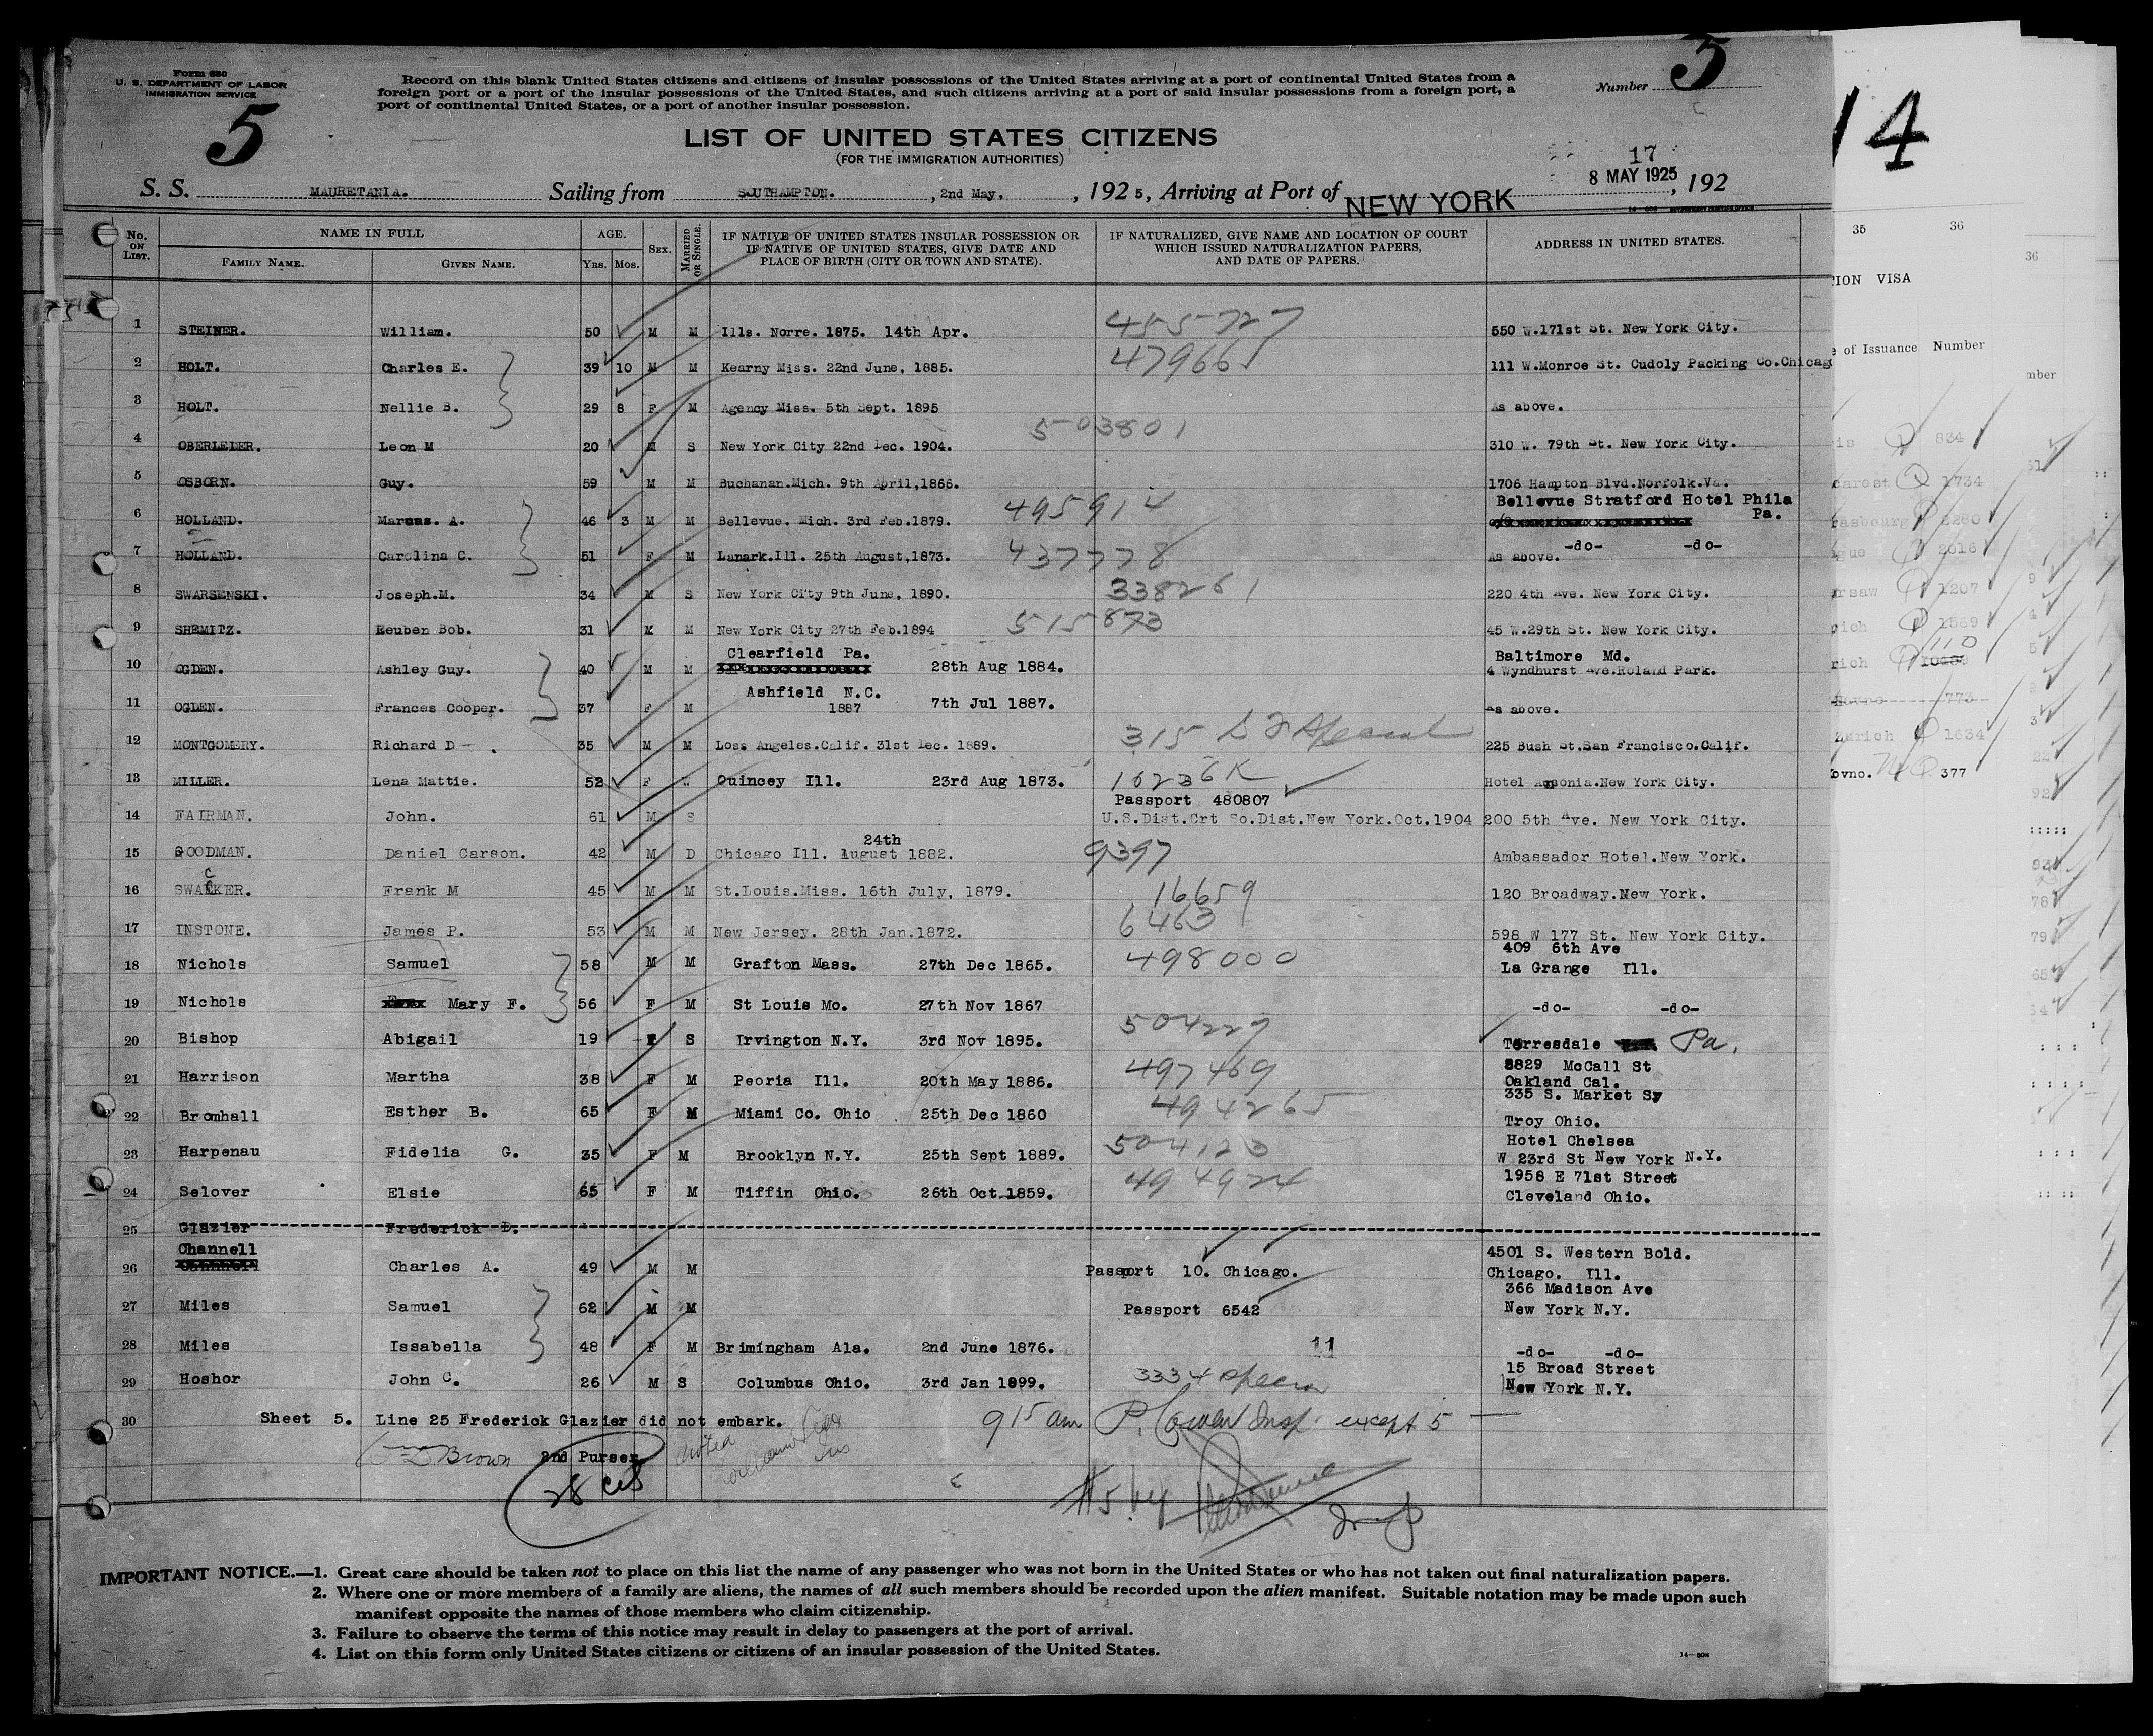 Form 630
U. S. DEPARTMENT OF LABOR
IMMIGRATION SERVICE
5
Record on this blank United States citizens and citizens of insular possessions of the United States arriving at a port of continental United States from a
foreign port or a port of the insular possessions of the United States, and such citizens arriving at a port of said insular possessions from a foreign port, a
port of continental United States, or a port of another insular possession.
Number 5
14
LIST OF UNITED STATES CITIZENS
(FOR THE IMMIGRATION AUTHORITIES)
17
S. S. MAURETANIA. Sailing from SOUTHAMPTON. , 2nd May, , 192 5, Arriving at Port of NEW YORK 8 MAY 1925, 192
No. ON LIST. NAME IN FULL FAMILY NAME. GIVEN NAME. AGE. YRS. MOS. SEX. MARRIED OR SINGLE. IF NATIVE OF UNITED STATES INSULAR POSSESSION OR IF NATIVE OF UNITED STATES, GIVE DATE AND PLACE OF BIRTH (CITY OR TOWN AND STATE). IF NATURALIZED, GIVE NAME AND LOCATION OF COURT WHICH ISSUED NATURALIZATION PAPERS, AND DATE OF PAPERS. ADDRESS IN UNITED STATES.
35 36
36
ION VISA
e of Issuance Number
mber
1 STEINER. William. 50 M M Ills. Norre. 1875. 14th Apr. 455727 550 W.171st St. New York City.
2 HOLT. Charles E. 39 10 M M Kearny Miss. 22nd June, 1885. 47966 111 W.Monroe St. Cudoly Packing Co.Chicag
3 HOLT. Nellie B. 29 8 F M Agency Miss. 5th Sept. 1895 As above.
4 OBERLEDER. Leon M 20 M S New York City 22nd Dec. 1904. 503801 310 W. 79th St. New York City.
5 OSBORN. Guy. 59 M M Buchanan.Mich. 9th April,1866. 1706 Hampton Blvd.Norfolk.Va.
6 HOLLAND. Marcus. A. 46 3 M M Bellevue. Mich. 3rd Feb.1879. 495914 Bellevue Stratford Hotel Phila Pa.
7 HOLLAND. Carolina C. 51 F M Lanark.Ill. 25th August,1873. 437778 As above. -do- -do-
8 SWARSENSKI. Joseph.M. 34 M S New York City 9th June, 1890. 338261 220 4th Ave. New York City.
9 SHEMITZ. Reuben Bob. 31 M M New York City 27th Feb.1894 515873 45 W.29th St. New York City.
10 OGDEN. Ashley Guy. 40 M M Clearfield Pa. 28th Aug 1884. Baltimore Md. 4 Wyndhurst Ave.Roland Park.
11 OGDEN. Frances Cooper. 37 F M Ashfield N.C. 1887 7th Jul 1887. As above.
12 MONTGOMERY. Richard D - . 35 M M Loss Angeles.Calif. 31st Dec. 1889. 315 S F Special 225 Bush St.San Francisco.Calif.
13 MILLER. Lena Mattie. 52 F Quincey Ill. 23rd Aug 1873. 16236K Hotel Ansonia.New York City.
14 FAIRMAN. John. 61 M S Passport 480807 U.S.Dist.Crt So.Dist.New York.Oct.1904 200 5th Ave. New York City.
15 GOODMAN. Daniel Carson. 42 M D Chicago Ill. 24th August 1882. 9397 Ambassador Hotel.New York.
16 SWACKER. Frank M 45 M M St.Louis.Miss. 16th July, 1879. 16659 120 Broadway.New York.
17 INSTONE. James P. 53 M M New Jersey. 28th Jan.1872. 6463 598 W 177 St. New York City.
18 Nichols Samuel 58 M M Grafton Mass. 27th Dec 1865. 498000 409 6th Ave La Grange Ill.
19 Nichols Mary F. 56 F M St Louis Mo. 27th Nov 1867 -do- -do-
20 Bishop Abigail 19 F S Irvington N.Y. 3rd Nov 1895. 504227 Torresdale Pa.
21 Harrison Martha 38 F M Peoria Ill. 20th May 1886. 497469 3829 McCall St Oakland Cal.
22 Bromhall Esther B. 65 F M Miami Co. Ohio 25th Dec 1860 494265 335 S. Market Sy Troy Ohio.
23 Harpenau Fidelia G. 35 F M Brooklyn N.Y. 25th Sept 1889. 504123 Hotel Chelsea W 23rd St New York N.Y.
24 Selover Elsie 65 F M Tiffin Ohio. 26th Oct.1859. 494924 1958 E 71st Street Cleveland Ohio.
25 Glazier Frederick D.
26 Channell Charles A. 49 M M Passport 10. Chicago. 4501 S. Western Bold. Chicago. Ill.
27 Miles Samuel 62 M M Passport 6542 366 Madison Ave New York N.Y.
28 Miles Issabella 48 F M Brimingham Ala. 2nd June 1876. 11 -do- -do-
29 Hoshor John C. 26 M S Columbus Ohio. 3rd Jan 1899. 3334 Specia 15 Broad Street New York N.Y.
30 Sheet 5. Line 25 Frederick Glazier did not embark. 915 am P. Insp. except 5
Brown 2nd Purser noted
28 cits
#5 by
IMPORTANT NOTICE.—1. Great care should be taken not to place on this list the name of any passenger who was not born in the United States or who has not taken out final naturalization papers.
2. Where one or more members of a family are aliens, the names of all such members should be recorded upon the alien manifest. Suitable notation may be made upon such
manifest opposite the names of those members who claim citizenship.
3. Failure to observe the terms of this notice may result in delay to passengers at the port of arrival.
4. List on this form only United States citizens or citizens of an insular possession of the United States.